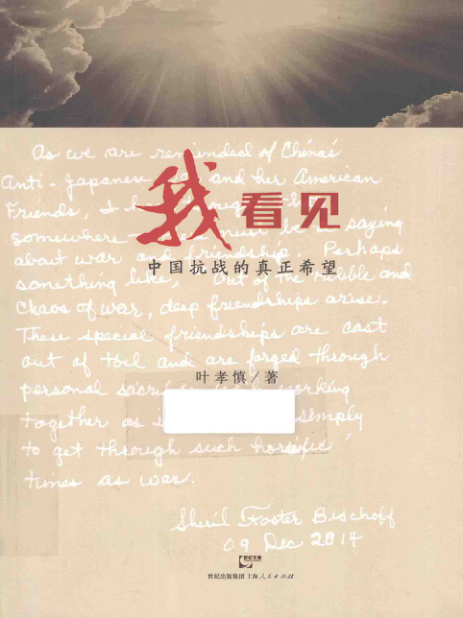 As we are reminded of China's
Anti-Japanese and her American
Friends, I
somewhere must be saying
about war and friendship. Perhaps
something like, Out of the rubble and
chaos of war, deep friendships arise.
These special friendships are cast
out of toil and are forged through
personal working
together as simply
to get through such horrific
times as war.
Sheril Foster Bischoff
09 Dec 2014
我看见
中国抗战的真正希望
叶孝慎/著
世纪出版集团 上海人民出版社